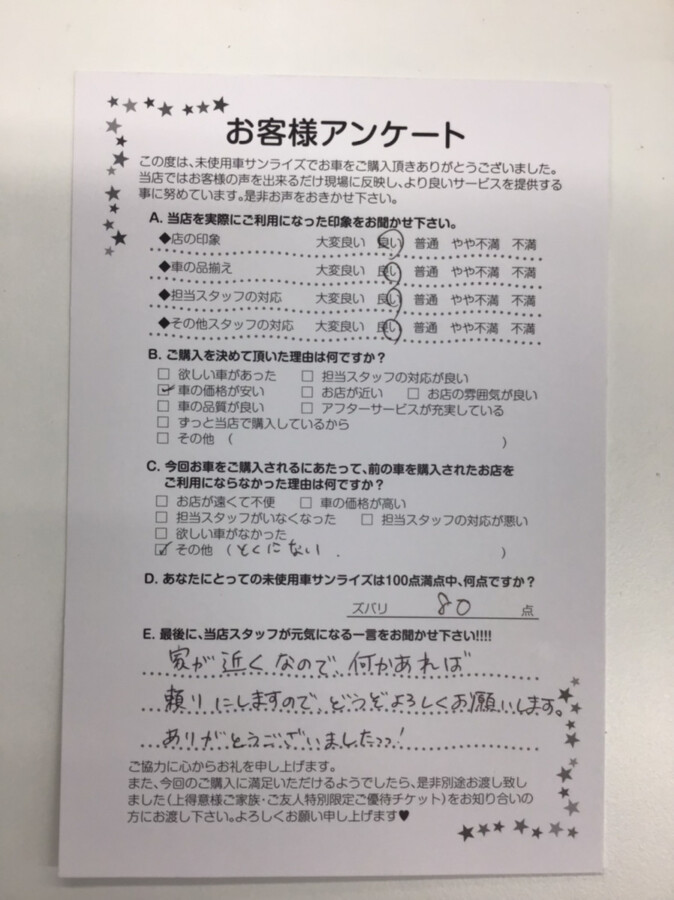 お客様アンケート
この度は、未使用車サンライズでお車をご購入頂きありがとうございました。
当店ではお客様の声を出来るだけ現場に反映し、より良いサービスを提供する
事に努めています。是非お声をおきかせ下さい。
A. 当店を実際にご利用になった印象をお聞かせ下さい。
◆店の印象 大変良い 良い 普通 やや不満 不満
◆車の品揃え 大変良い 良い 普通 やや不満 不満
◆担当スタッフの対応 大変良い 良い 普通 やや不満 不満
◆その他スタッフの対応 大変良い 良い 普通 やや不満 不満
B. ご購入を決めて頂いた理由は何ですか?
□ 欲しい車があった □ 担当スタッフの対応が良い
☑ 車の価格が安い □ お店が近い □ お店の雰囲気が良い
□ 車の品質が良い □ アフターサービスが充実している
□ ずっと当店で購入しているから
□ その他 ( )
C. 今回お車をご購入されるにあたって、前の車を購入されたお店を
ご利用にならなかった理由は何ですか?
□ お店が遠くて不便 □ 車の価格が高い
□ 担当スタッフがいなくなった □ 担当スタッフの対応が悪い
□ 欲しい車がなかった
☑ その他 (とくにない. )
D. あなたにとっての未使用車サンライズは100点満点中、何点ですか?
ズバリ 80 点
E. 最後に、当店スタッフが元気になる一言をお聞かせ下さい!!!!
家が近くなので、何かあれば
頼りにしますので、どうぞよろしくお願いします。
ありがとうございましたっっ!
ご協力に心からお礼を申し上げます。
また、今回のご購入に満足いただけるようでしたら、是非別途お渡し致し
ました(上得意様ご家族・ご友人特別限定ご優待チケット)をお知り合いの
方にお渡し下さい。よろしくお願い申し上げます♥